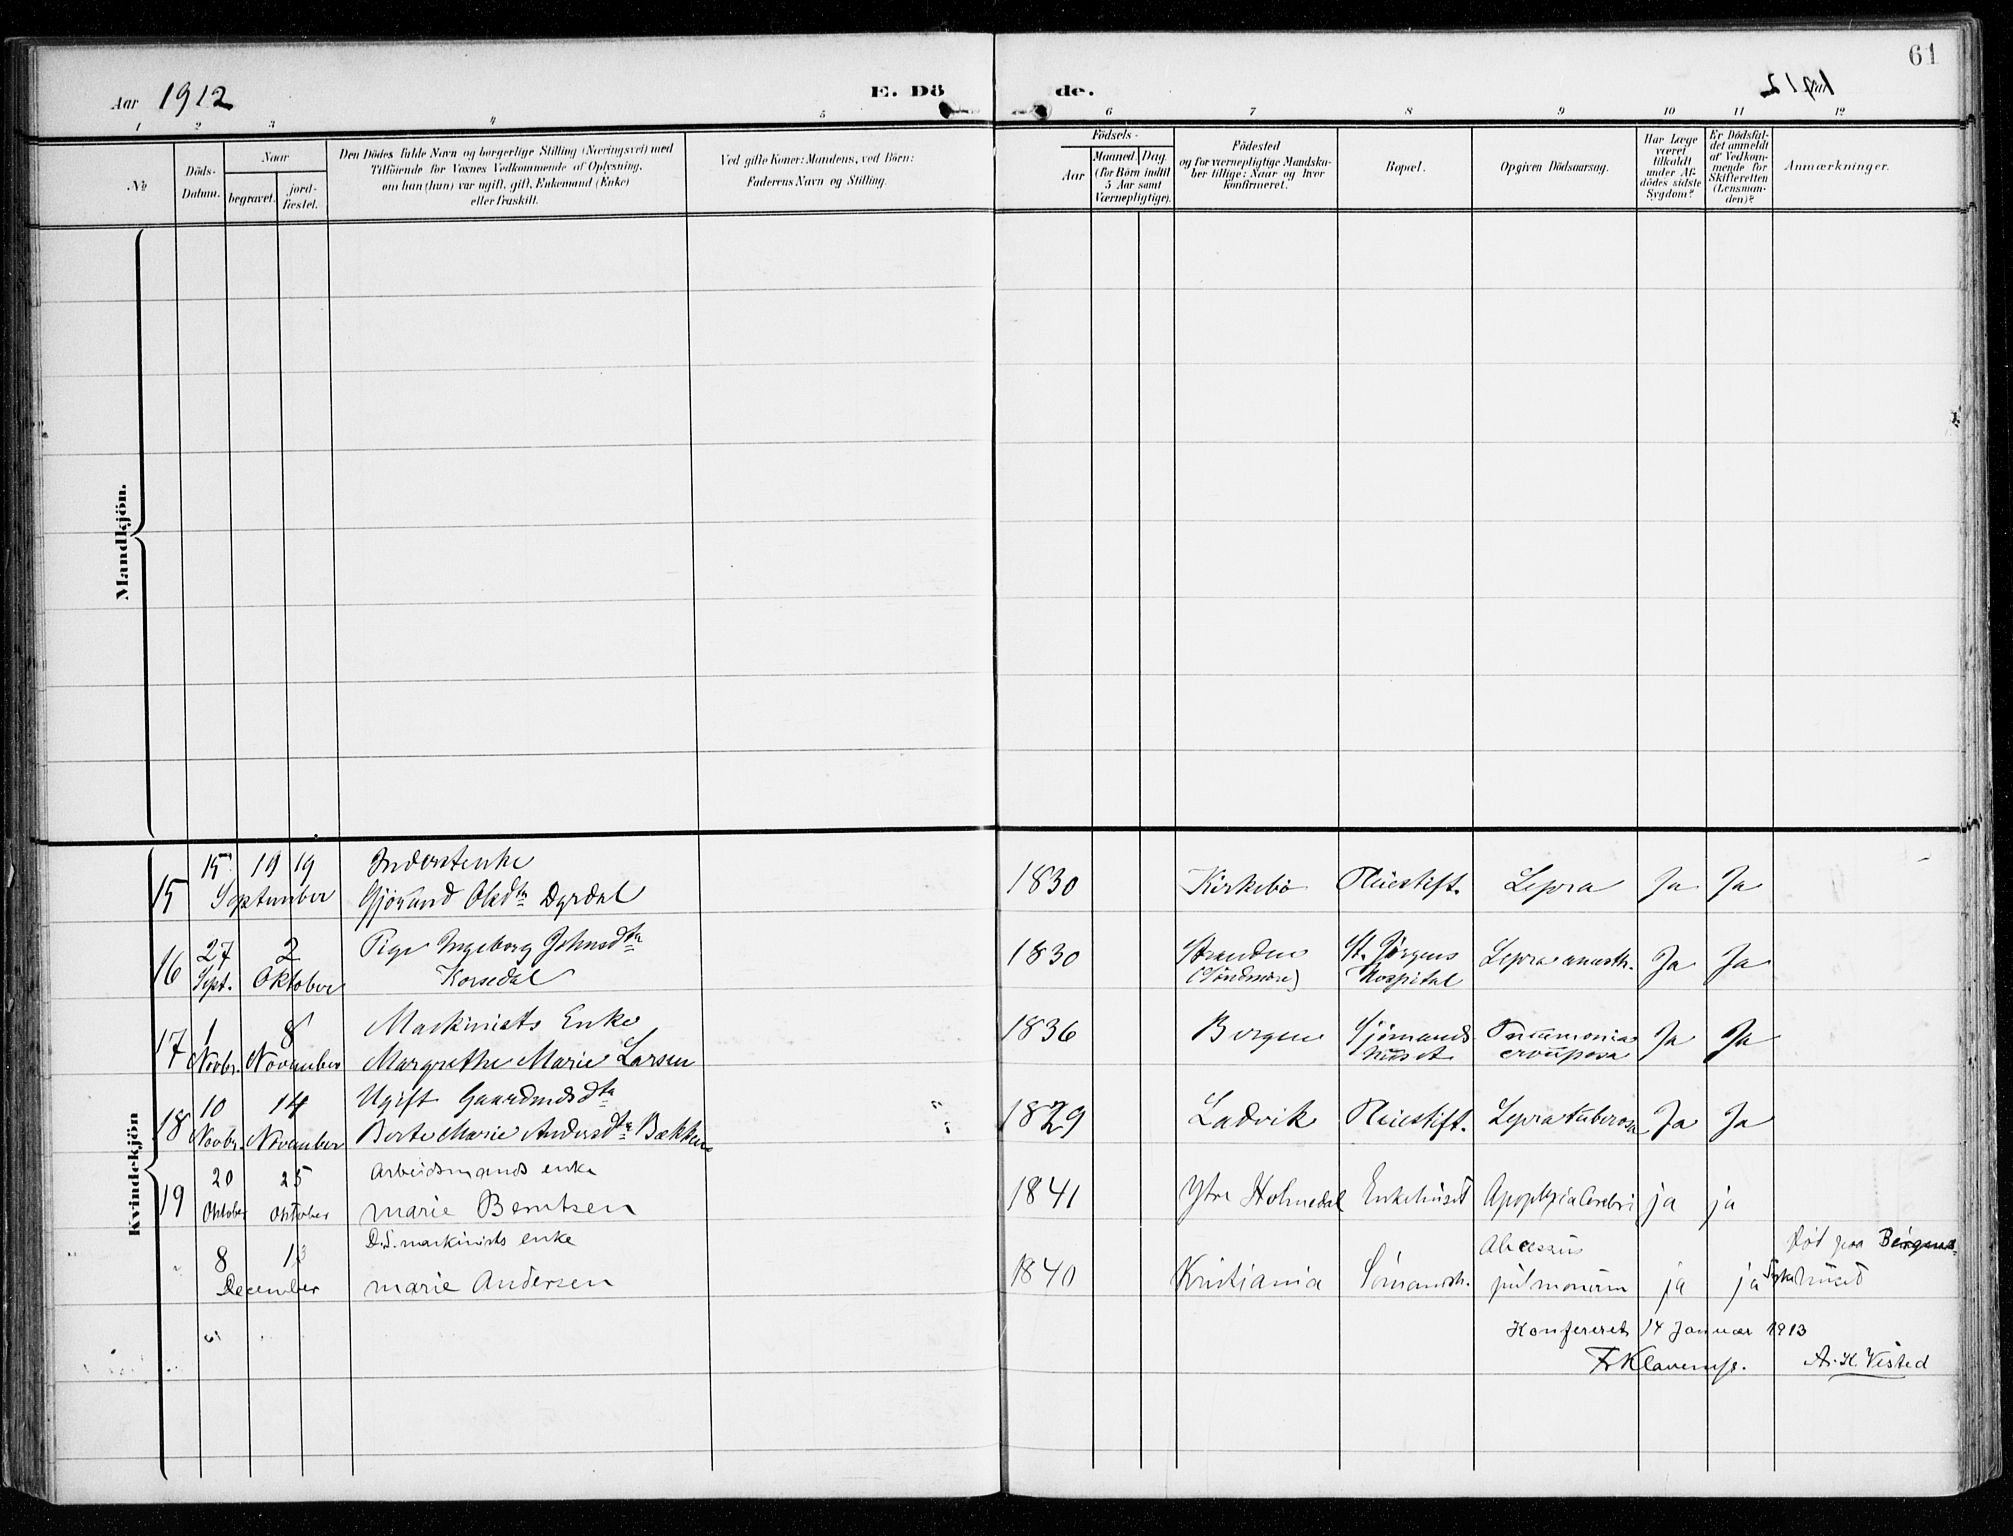 61
Aar 1912
E. Dö de.
1912
1 2 3 4 5 6 7 8 9 10 11 12
No
Döds-
Datum.
Naar
begravet.
jord-
fæstet.
Den Dödes fulde Navn og borgerlige Stilling (Næringsvei) med
Tilföiende for Voxnes Vedkommende af Oplysning,
om han (hun) var ugift, gift, Enkemand (Enke)
eller fraskilt.
Ved gifte Koner: Mandens, ved Börn:
Faderens Navn og Stilling.
Födsels-
Aar
Maaned. Dag.
(for Børn indtil
5 Aar samt
Værnepligtige).
Födested
og for værnepligtige Mandska-
ber tillige: Naar og hvor
konfirmeret.
Bopæl.
Opgiven Dödsaarsag.
Har Læge
været
tilkaldt
under Af-
dödes sidste
Sygdom?
Er Dödsfal-
det anmeldt
af Vedkom-
mende for
Skifteretten
(Lensman-
den)?
Anmærkninger.
Mandkjön.
Kvindekjön
15 19 19 Inderstenke
15 September Gjörand Olsdtr Dyrdal 1830 Kirkebö Pleiestift. Lepra Ja Ja
27 2 Pige Ingeborg Johnsdtr 1830 Stranden St. Jörgens Lepra anæsth. Ja Ja
16 Sept. Oktober Korsedal (Söndmöre) Hospital
1 8 Maskinists Enke 1836 Bergen Sjömands Pneumonia Ja Ja
17 Novbr. November Margrethe Marie Larsen huset crouposa
10 14 Ugift Gaardmdsdtr
18 Novbr. November Berte Marie Andersdtr Bækken 1829 Ladvik Pleiestift. Lepra tuberosa Ja Ja
20 25 Arbeidsmands enke
19 Oktober Oktober Marie Berntsen 1841 Ytre Holmedal Enkehuset Apoplexia Cerebri ja ja
8 13 D.S. maskinists enke Abcessus Död paa Bergens
December Marie Andersen 1840 Kristiania Sömandsh. pulmonum ja ja Sykehuset
Konfereret 14 Januar 1913
A. H. Visted